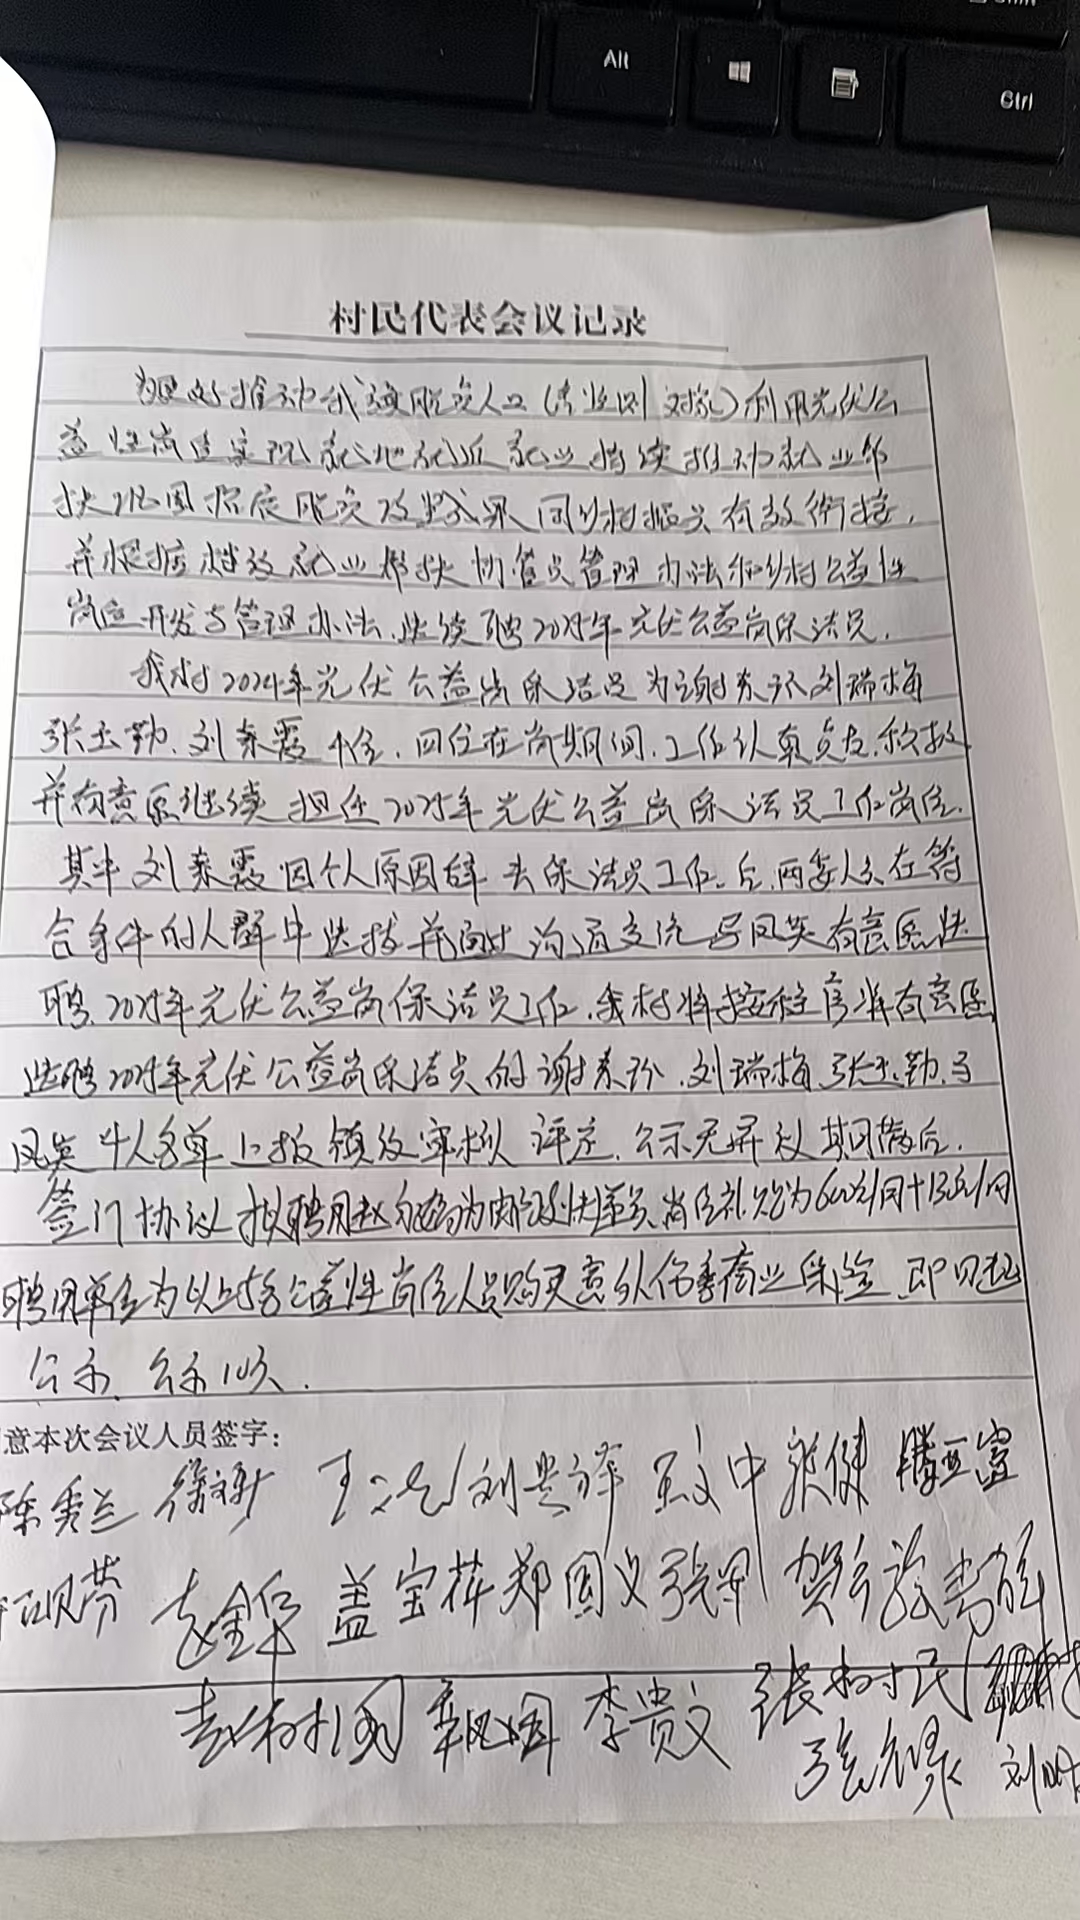 Alt
Ctrl
村民代表会议记录
为更好推动我镇脱贫人口(含监测对象)利用光伏公
益性岗位实现就地就近就业持续推动就业帮
扶巩固拓展脱贫攻坚成果同乡村振兴有效衔接,
并根据村级就业帮扶协管员管理办法和乡村公益性
岗位开发与管理办法,选续聘2025年光伏公益岗保洁员.
我村2024年光伏公益岗保洁员为谢素珍刘瑞梅
张玉勤、刘素霞4位,四位在岗期间,工作认真负责,积极
并有意愿继续担任2025年光伏公益岗保洁员工作岗位.
其中刘素霞因个人原因辞去保洁员工作后,两委人员在符
合条件的人群中选拔并通过沟通交流 凤英有意愿选
聘2025年光伏公益岗保洁员工作,我村将按程序将有意愿
选聘2025年光伏公益岗保洁员的谢素珍、刘瑞梅、张玉勤、
凤英4人名单上报镇级审核评定,公示无异议期满后,
签订协议 拟聘用赵 为 岗位补贴为600元/月+ /月
聘用单位为以上5名公益性岗位人员购买意外伤害商业保险,即日起
公示,公示10天.
意本次会议人员签字:
陈秀兰 徐 王 刘贵祥 中 张健 滕亚富
赵金 盖宝 郑国义 贺
赵树国 李贵文 张树民
张 刘